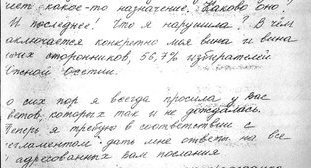 какое-то назначение. Каково оно?
И последнее! Что я нарушила? В чём
аключается конкретно моя вина и вина
оих сторонников, 56,7% избирателей
жной Осетии.
о сих пор я всегда просила у вас
ветов, которых так и не дождалась.
еперь я требую в соответствии с
егламентом: дать мне ответы на все
адресованных вам послания